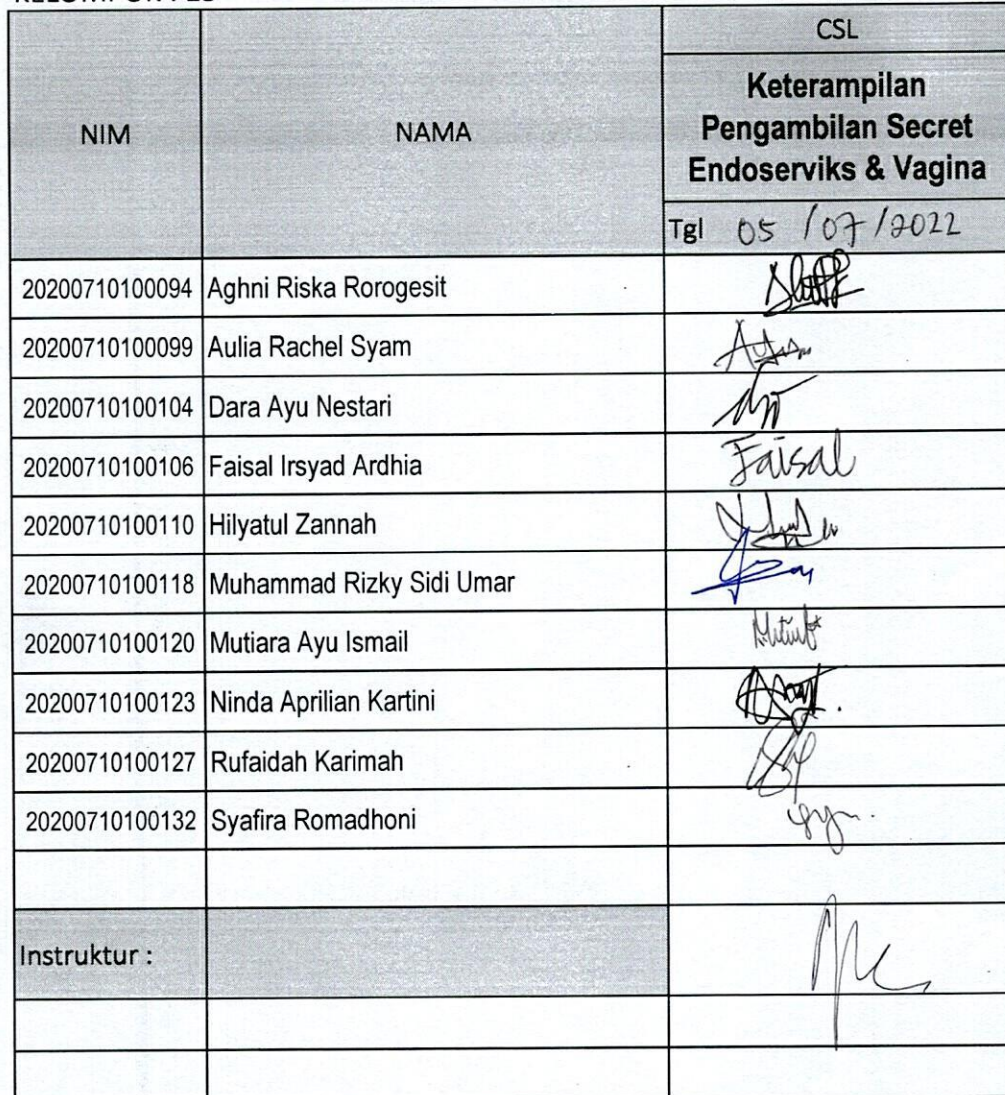 CSL
NIM
NAMA
Keterampilan
Pengambilan Secret
Endoserviks & Vagina
Tgl 05 /07/2022
20200710100094 Aghni Riska Rorogesit
20200710100099 Aulia Rachel Syam
20200710100104 Dara Ayu Nestari
20200710100106 Faisal Irsyad Ardhia Faisal
20200710100110 Hilyatul Zannah
20200710100118 Muhammad Rizky Sidi Umar
20200710100120 Mutiara Ayu Ismail
20200710100123 Ninda Aprilian Kartini
20200710100127 Rufaidah Karimah
20200710100132 Syafira Romadhoni
Instruktur :